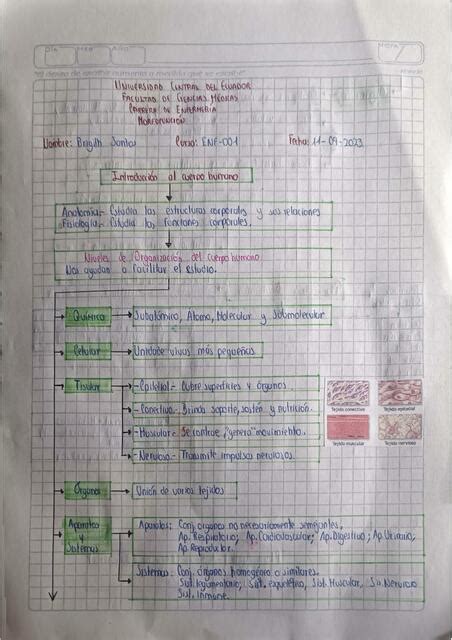 Día
Mes
Año
Hora
UNIVERSIDAD CENTRAL DEL ECUADOR
FACULTAD DE CIENCIAS MÉDICAS
CARRERA DE ENFERMERÍA
MORFOFUNCIÓN
Nombre: Brigith Santos Curso: ENF-001 Fecha: 11-09-2023
Introducción al cuerpo humano
Anatomía.- Estudia las estructuras corporales y sus relaciones
Fisiología.- Estudia las funciones corporales.
Niveles de Organización del cuerpo humano
Nos ayudan a facilitar el estudio.
Químico
Subatómico, Atomo, Molecular y submolecular
Celular
Unidades vivas más pequeñas
Tisular
-Epitelial.- Cubre superficies y órganos.
-Conectivo.- Brinda soporte, sostén y nutrición.
-Muscular.- Se contrae, "genera" movimiento.
-Nervioso.- Transmite impulsos nerviosos.
Tejido conectivo
Tejido epitelial
Tejido muscular
Tejido nervioso
Órganos
Unión de varios tejidos
Aparatos y Sistemas
Aparatos: Conj. órganos no necesariamente semejantes.
Ap. Respiratorio; Ap. Cardiovascular; Ap. Digestivo; Ap. Urinario;
Ap. Reproductor.
Sistemas: Conj. órganos homogéneo o similares.
Sist. tegumentario; Sist. esquelético, Sist. Muscular, Sis. Nervioso
Sist. Inmune.